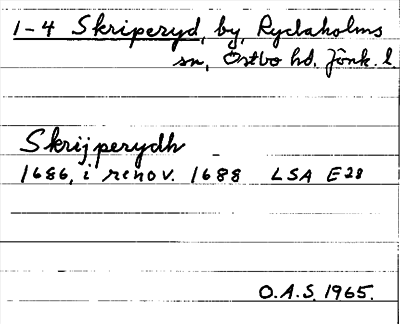 1-4 Skriperyd, by, Rydaholms
sn, Östbo hd. Jönk. l.
Skrijperydh
1686, i renov. 1688 LSA E28
O.A.S. 1965.